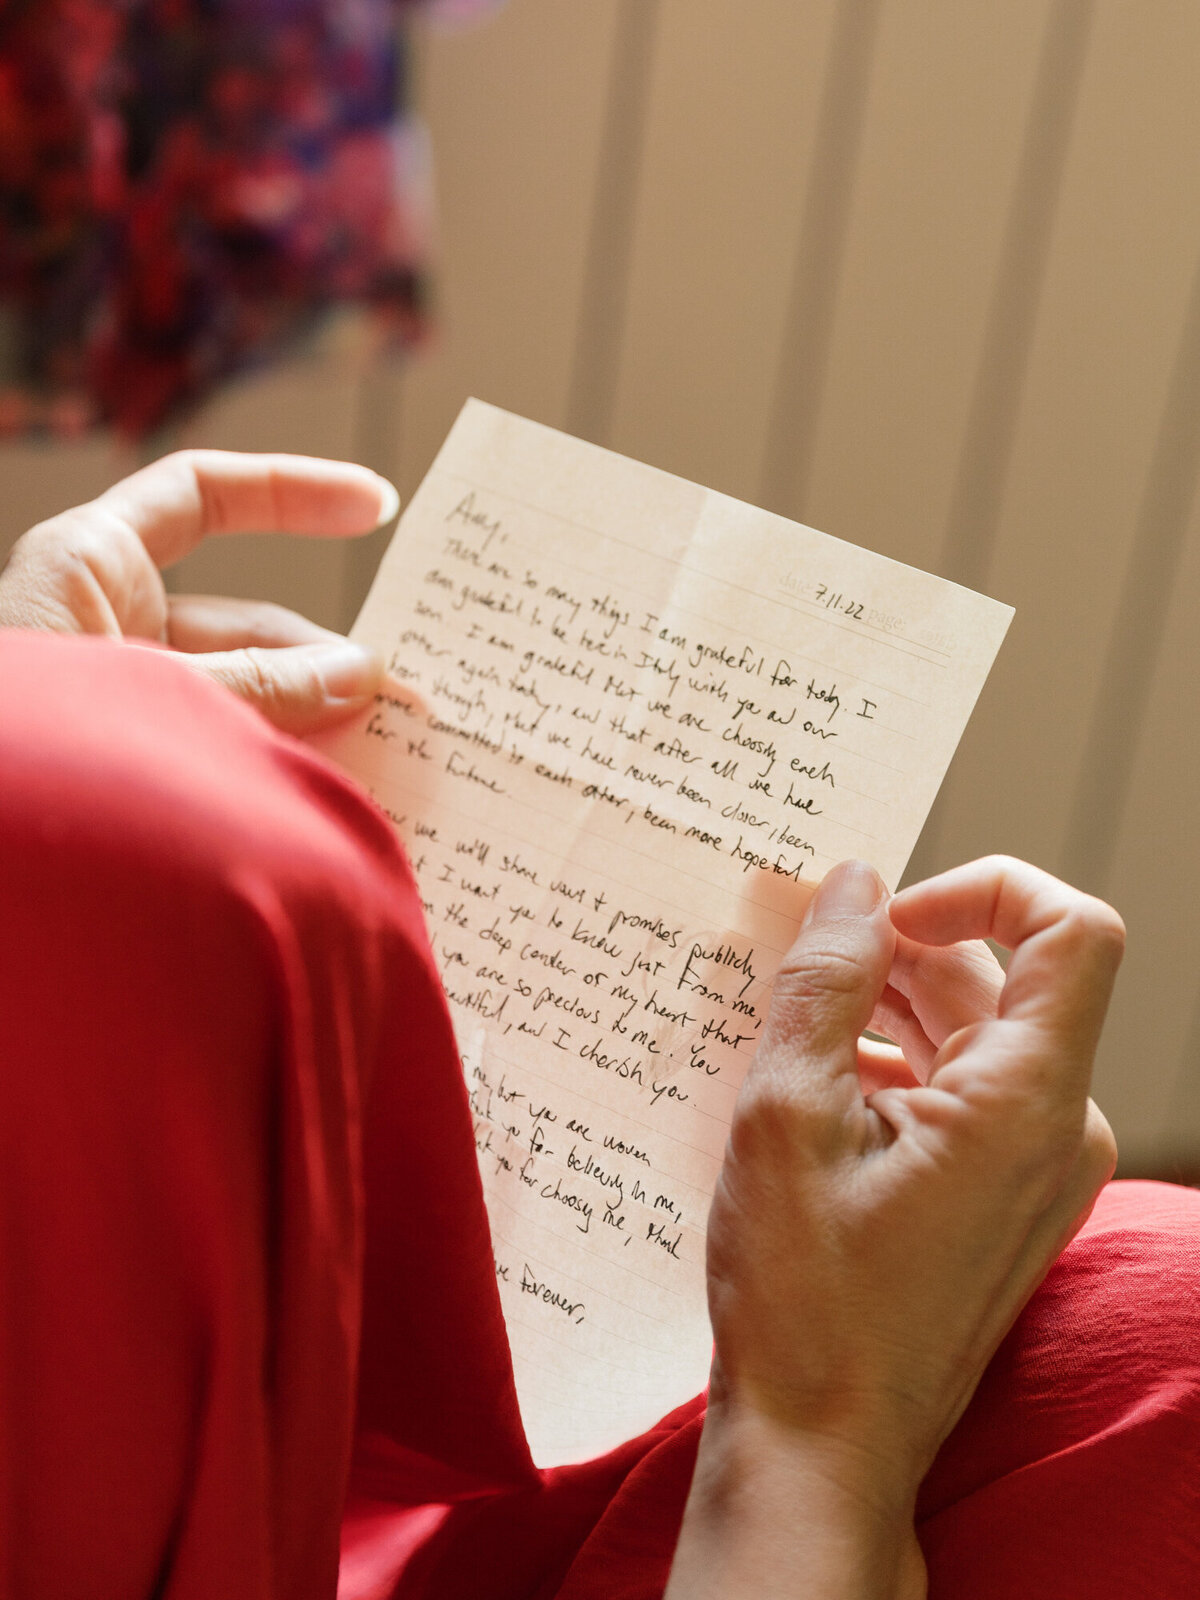 date: 7.11.22 page:
Amy,
There are so many things I am grateful for today. I
am grateful to be here in Italy with you and our
son. I am grateful that we are choosing each
other again today, and that after all we have
been through, that we have never been closer, been
more committed to each other, been more hopeful
for the future.
we will share vows & promises publicly
I want you to know just from me,
the deep center of my heart that
you are so precious to me. You
and I cherish you.
me, but you are woven
you for believing in me,
you for choosing me, thank
forever,